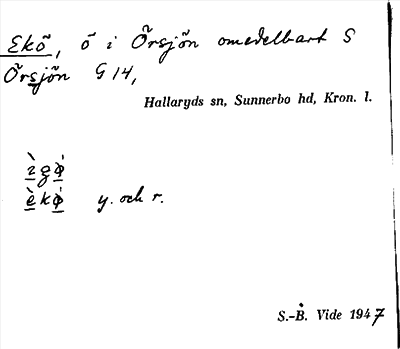 Ekö, ö i Örsjön omedelbart S
Örsjön G 14,
Hallaryds sn, Sunnerbo hd, Kron. l.
ìgø̀
èkø̀ y. och r.
S.-B. Vide 1947